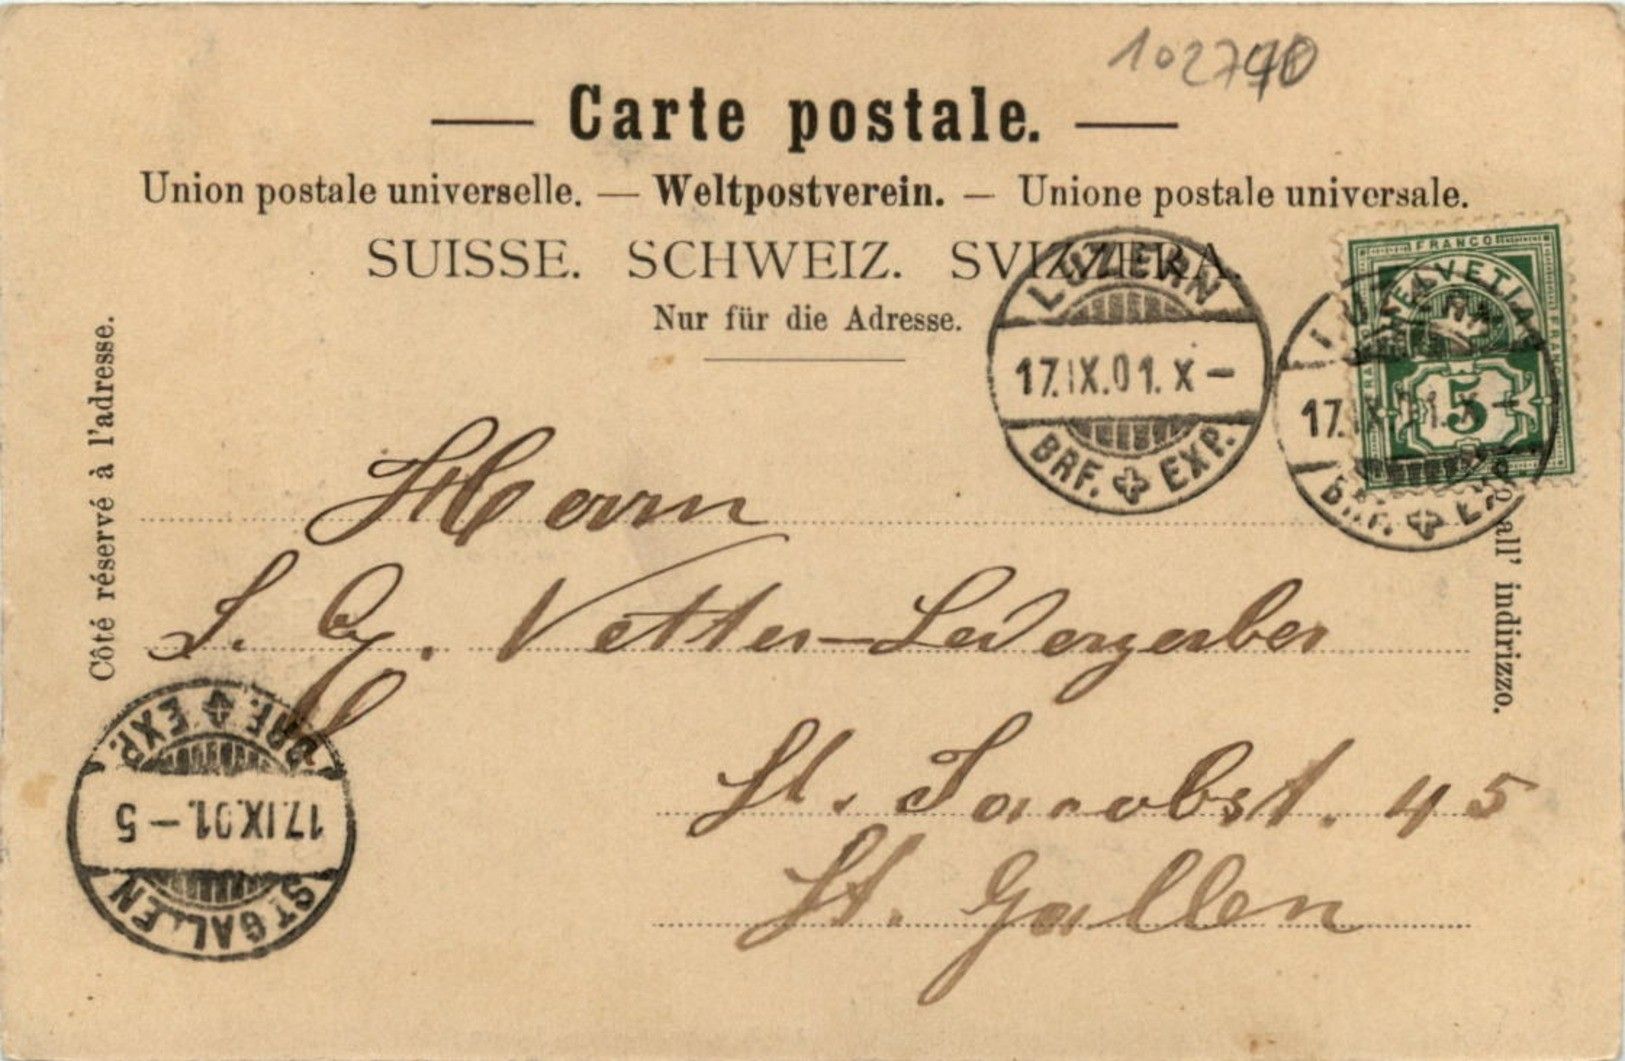 102740
— Carte postale. —
Union postale universelle. — Weltpostverein. — Unione postale universale.
SUISSE. SCHWEIZ. SVIZZERA.
Nur für die Adresse.
Côté réservé à l'adresse.
all' indirizzo.
FRANCO
HELVETIA
5
LUZERN
17.IX.01.X–
BRF. EXP.
LUZERN
17.IX.01.X–
BRF. EXP.
Herrn
J. G. Vetter-Ledergerber
St. Jacobst. 45
St. Gallen
ST GALLEN
17.IX.01.–5
BRF. EXP.